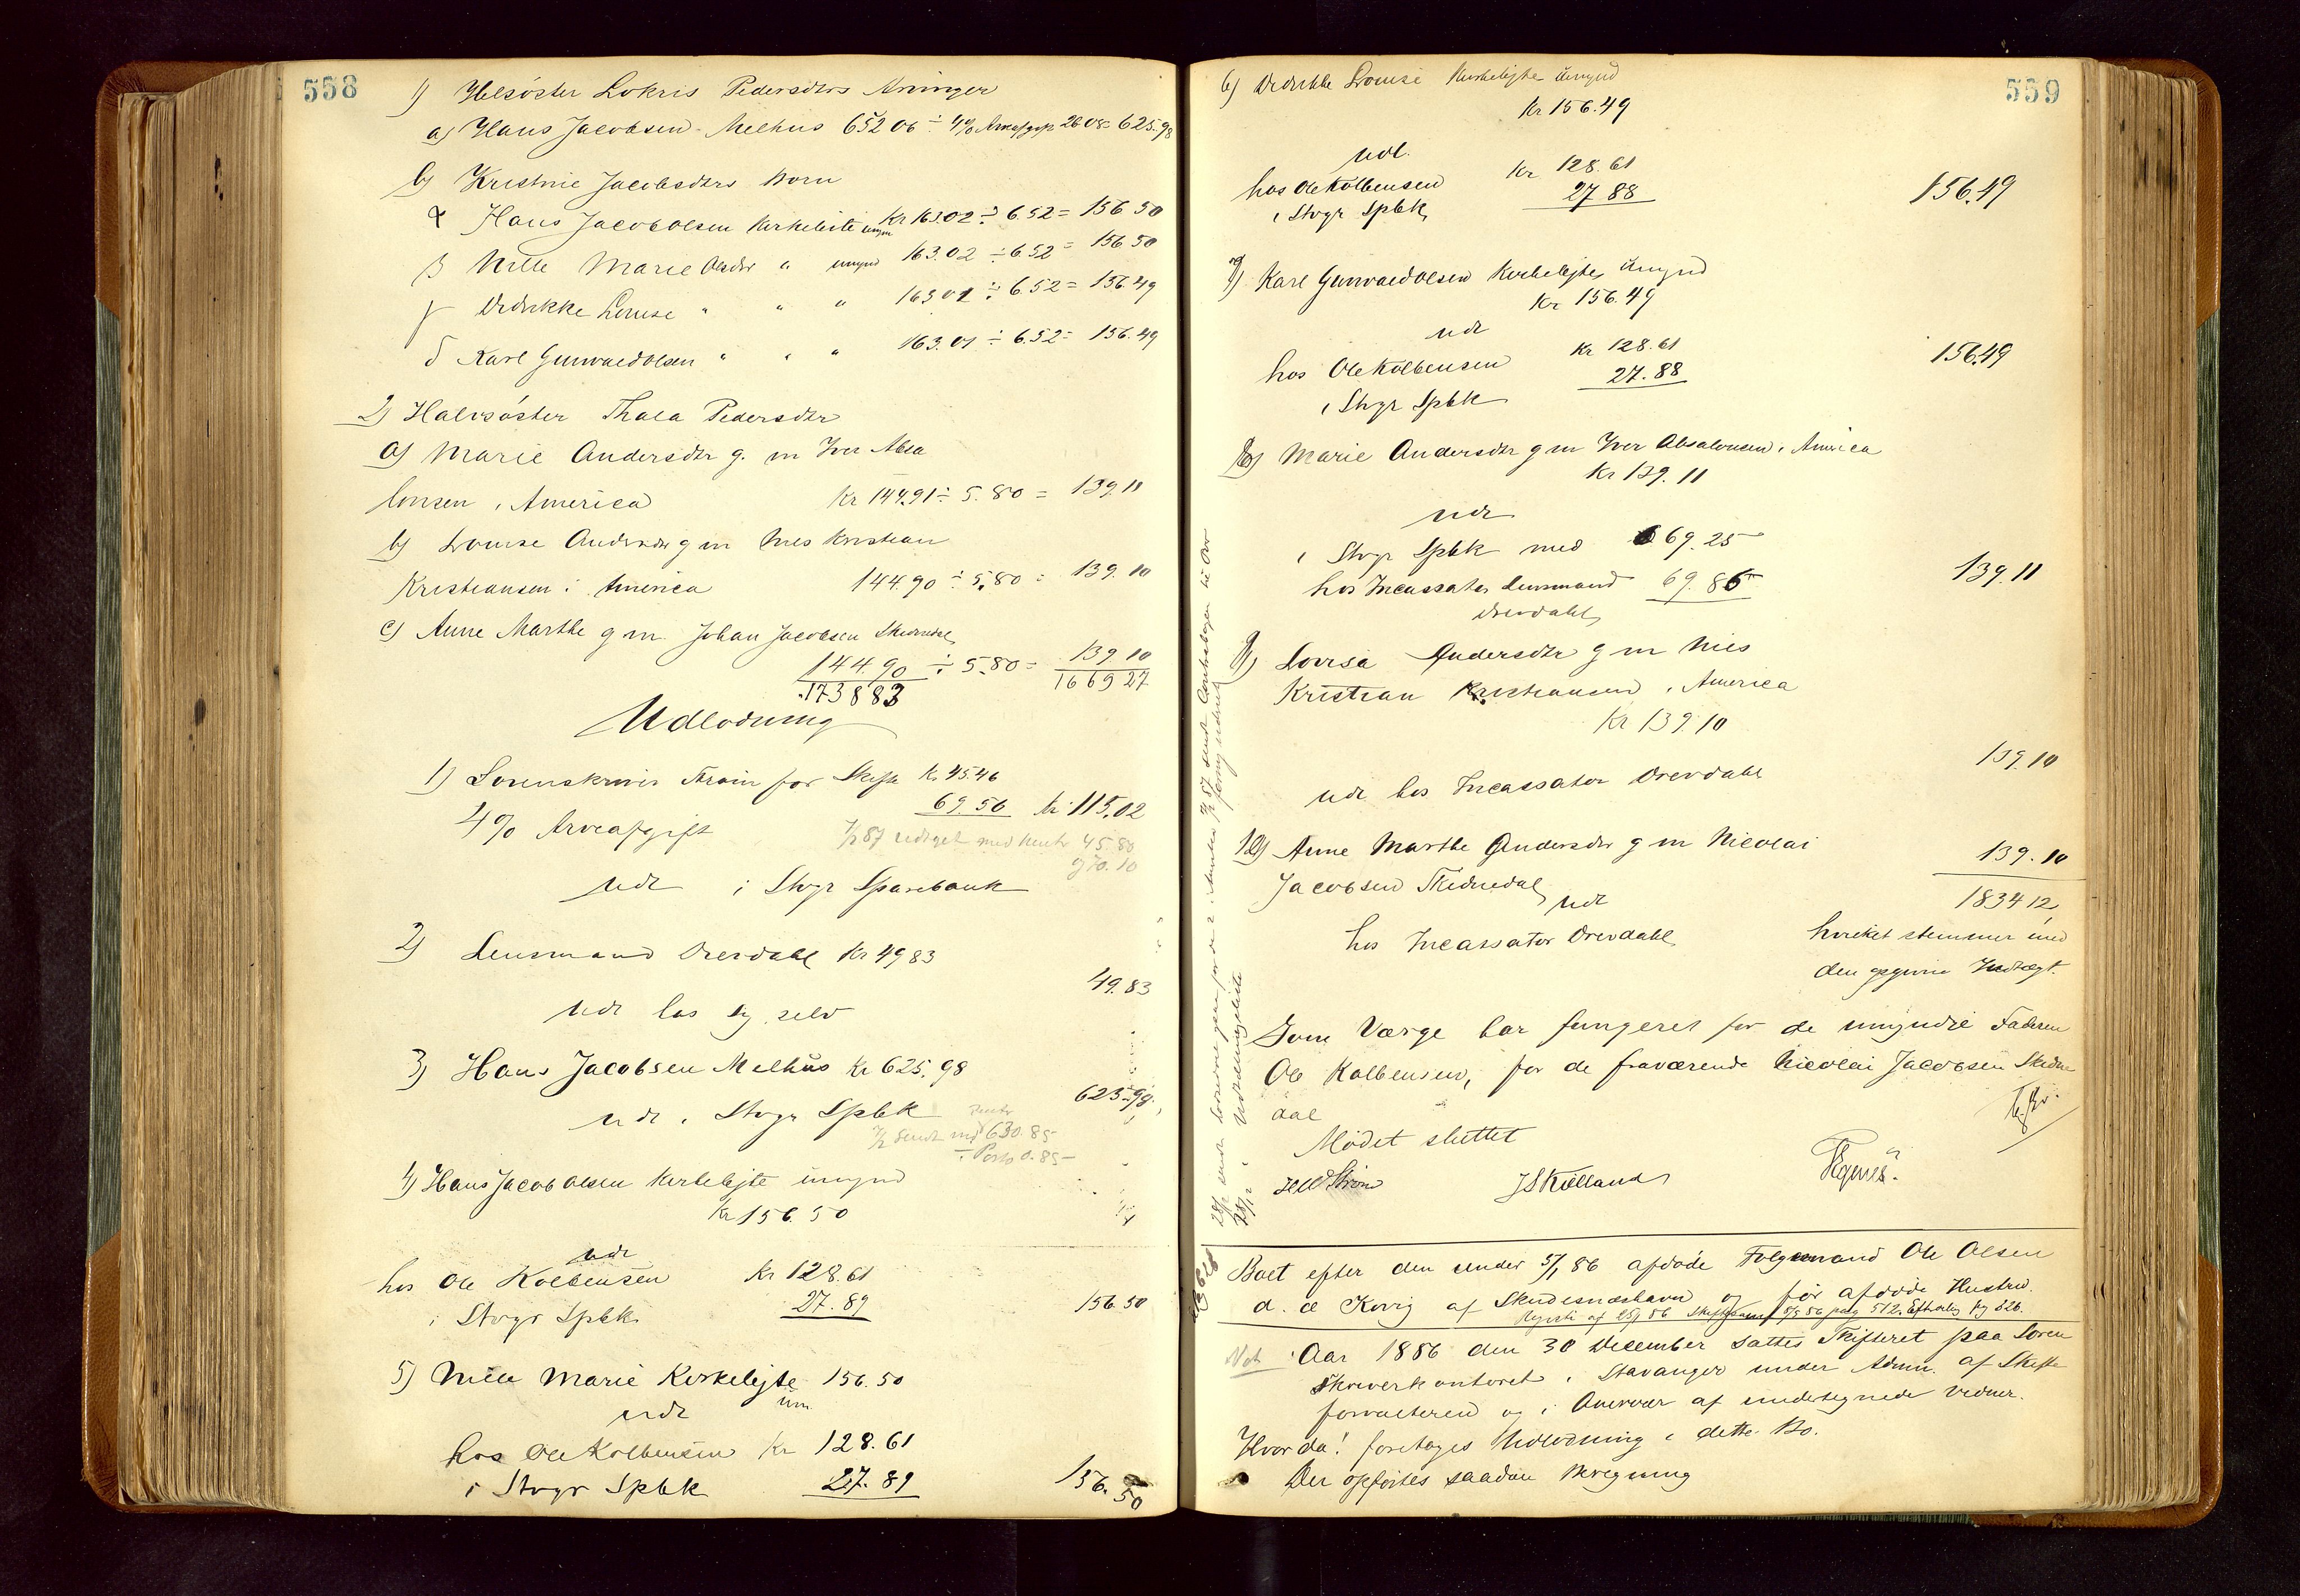 558
1) Helsöster Lokris Pedersdtrs Arvinger
a) Hans Jacobsen Melhus 652 06 ÷ 4% Arveafgift 26 08 = 625.98
b) Kristine Jacobsdtrs Børn
α Hans Jacob Olsen Kirkeleite umyn Kr 163.02 ÷ 6.52 = 156 50
β Nille Marie Olsdtr " umynd 163.02 ÷ 6.52 = 156 50
γ Didrikke Louise " " " 163 01 ÷ 6.52 = 156.49
δ Karl Gunvald Olsen " " " 163.01 ÷ 6.52 = 156.49
2) Halvsöster Thala Pedersdtr
a) Marie Andersdtr g. m Iver Absa
lonsen i America Kr 144.91 ÷ 5.80 = 139 11
b) Lovise Andersdtr g m Nils Kristian
Kristiansen i America 144.90 ÷ 5.80 = 139.10
c) Anne Marthe g m. Johan Jacobsen Skeiedal
144.90 ÷ 5.80 = 139 10
173883 1669 27
Udlodning
1) Sorenskriver Strøm for Skifte Kr 45.46
4% Arveafgift 69.56 Kr 115.02
7/2 87 udtaget med Renter 45.80
og 70.10
udl i Stvgr Sparebank
2) Lensmand Drevdahl Kr 49 83
49.83
udl hos sig selv
3) Hans Jacobsen Melhus Kr 625.98
625.98
udl i Stvgr Spbk
7/2 sendt med Renter 630.85
÷ Porto 0.85
4) Hans Jacob Olsen Kirkelejte umynd
Kr 156.50
udl
hos Ole Kolbensen Kr 128.61
i Stvgr Spbk 27.89 156.50
5) Nille Marie Kirkelejte 156.50
um
udl
hos Ole Kolbensen Kr 128.61
i Stvgr Spbk 27.89 156.50
559
6) Didrikke Louise Kirkelejte umynd
Kr 156.49
udl.
hos Ole Kolbensen Kr 128.61
i Stvgr Spbk 27 88 156.49
7) Karl Gunvald Olsen Kirkelejte umynd
Kr 156.49
udl
hos Ole Kolbensen Kr 128.61
i Stvgr Spbk 27.88 156.49
8) Marie Andersdtr g m Iver Absalonsen i America
Kr 139.11
udl
i Stvgr Spbk med 69.25
hos Incassator Lensmand 69.86 139.11
Drevdahl
9) Lovisa Andersdtr g m Nils
Kristian Kristiansen i America
Kr 139.10
udl hos Incassator Drevdahl 139.10
10) Anne Marthe Andersdtr g m Nicolai
Jacobsen Skeiedal 139.10
udl 1834 12
hos Incassator Drevdahl hvilket stemmer med
den opgivne Indtægt.
Som Værge har fungeret for de umyndie Faderen
Ole Kolbensen, for de fraværende Nicolai Jacobsen Skeie
dal
Mødet sluttet
Strøm J S Kielland
Boet efter den under 5/1 86 afdøde Følgemand Ole Olsen
d. æ Kvig af Skudesneshavn og før afdøde Hustru.
Aar 1886 den 30 December sattes Skifteret paa Soren
skriverkontoret i Stavanger under Adm. af Skifte
forvalteren og i Overvær af undertegnede Vidner.
Hvorda! foretoges Udlodning i dette Bo.
Der opførtes saadan Beregning